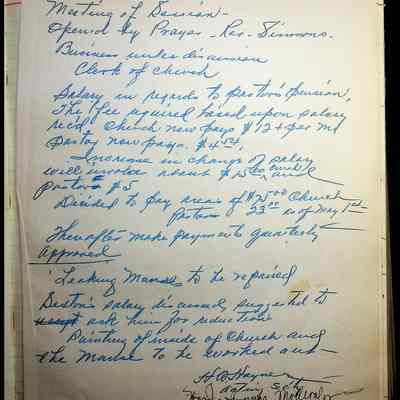 Meeting of Session -
Opened by Prayer - Rev. Simmons.
Business under discussion
Clerk of Church
Salary in regards to pastor's pension,
The fee required based upon salary
rec'd. Church now pays $12
Pastor now pays. $4
Increase in change of salary
will involve about $15 and
pastor $5
Decided to pay arears of $75.00 Church
Pastors 23.00 as of May 1st
Thereafter make payments quarterly
Approved
Leaking Manse to be repaired
salary discussed, suggested to
ask him for reduction
Painting of inside of Church and
the Manse to be worked out -
H. O. Hayner
acting
Moderator